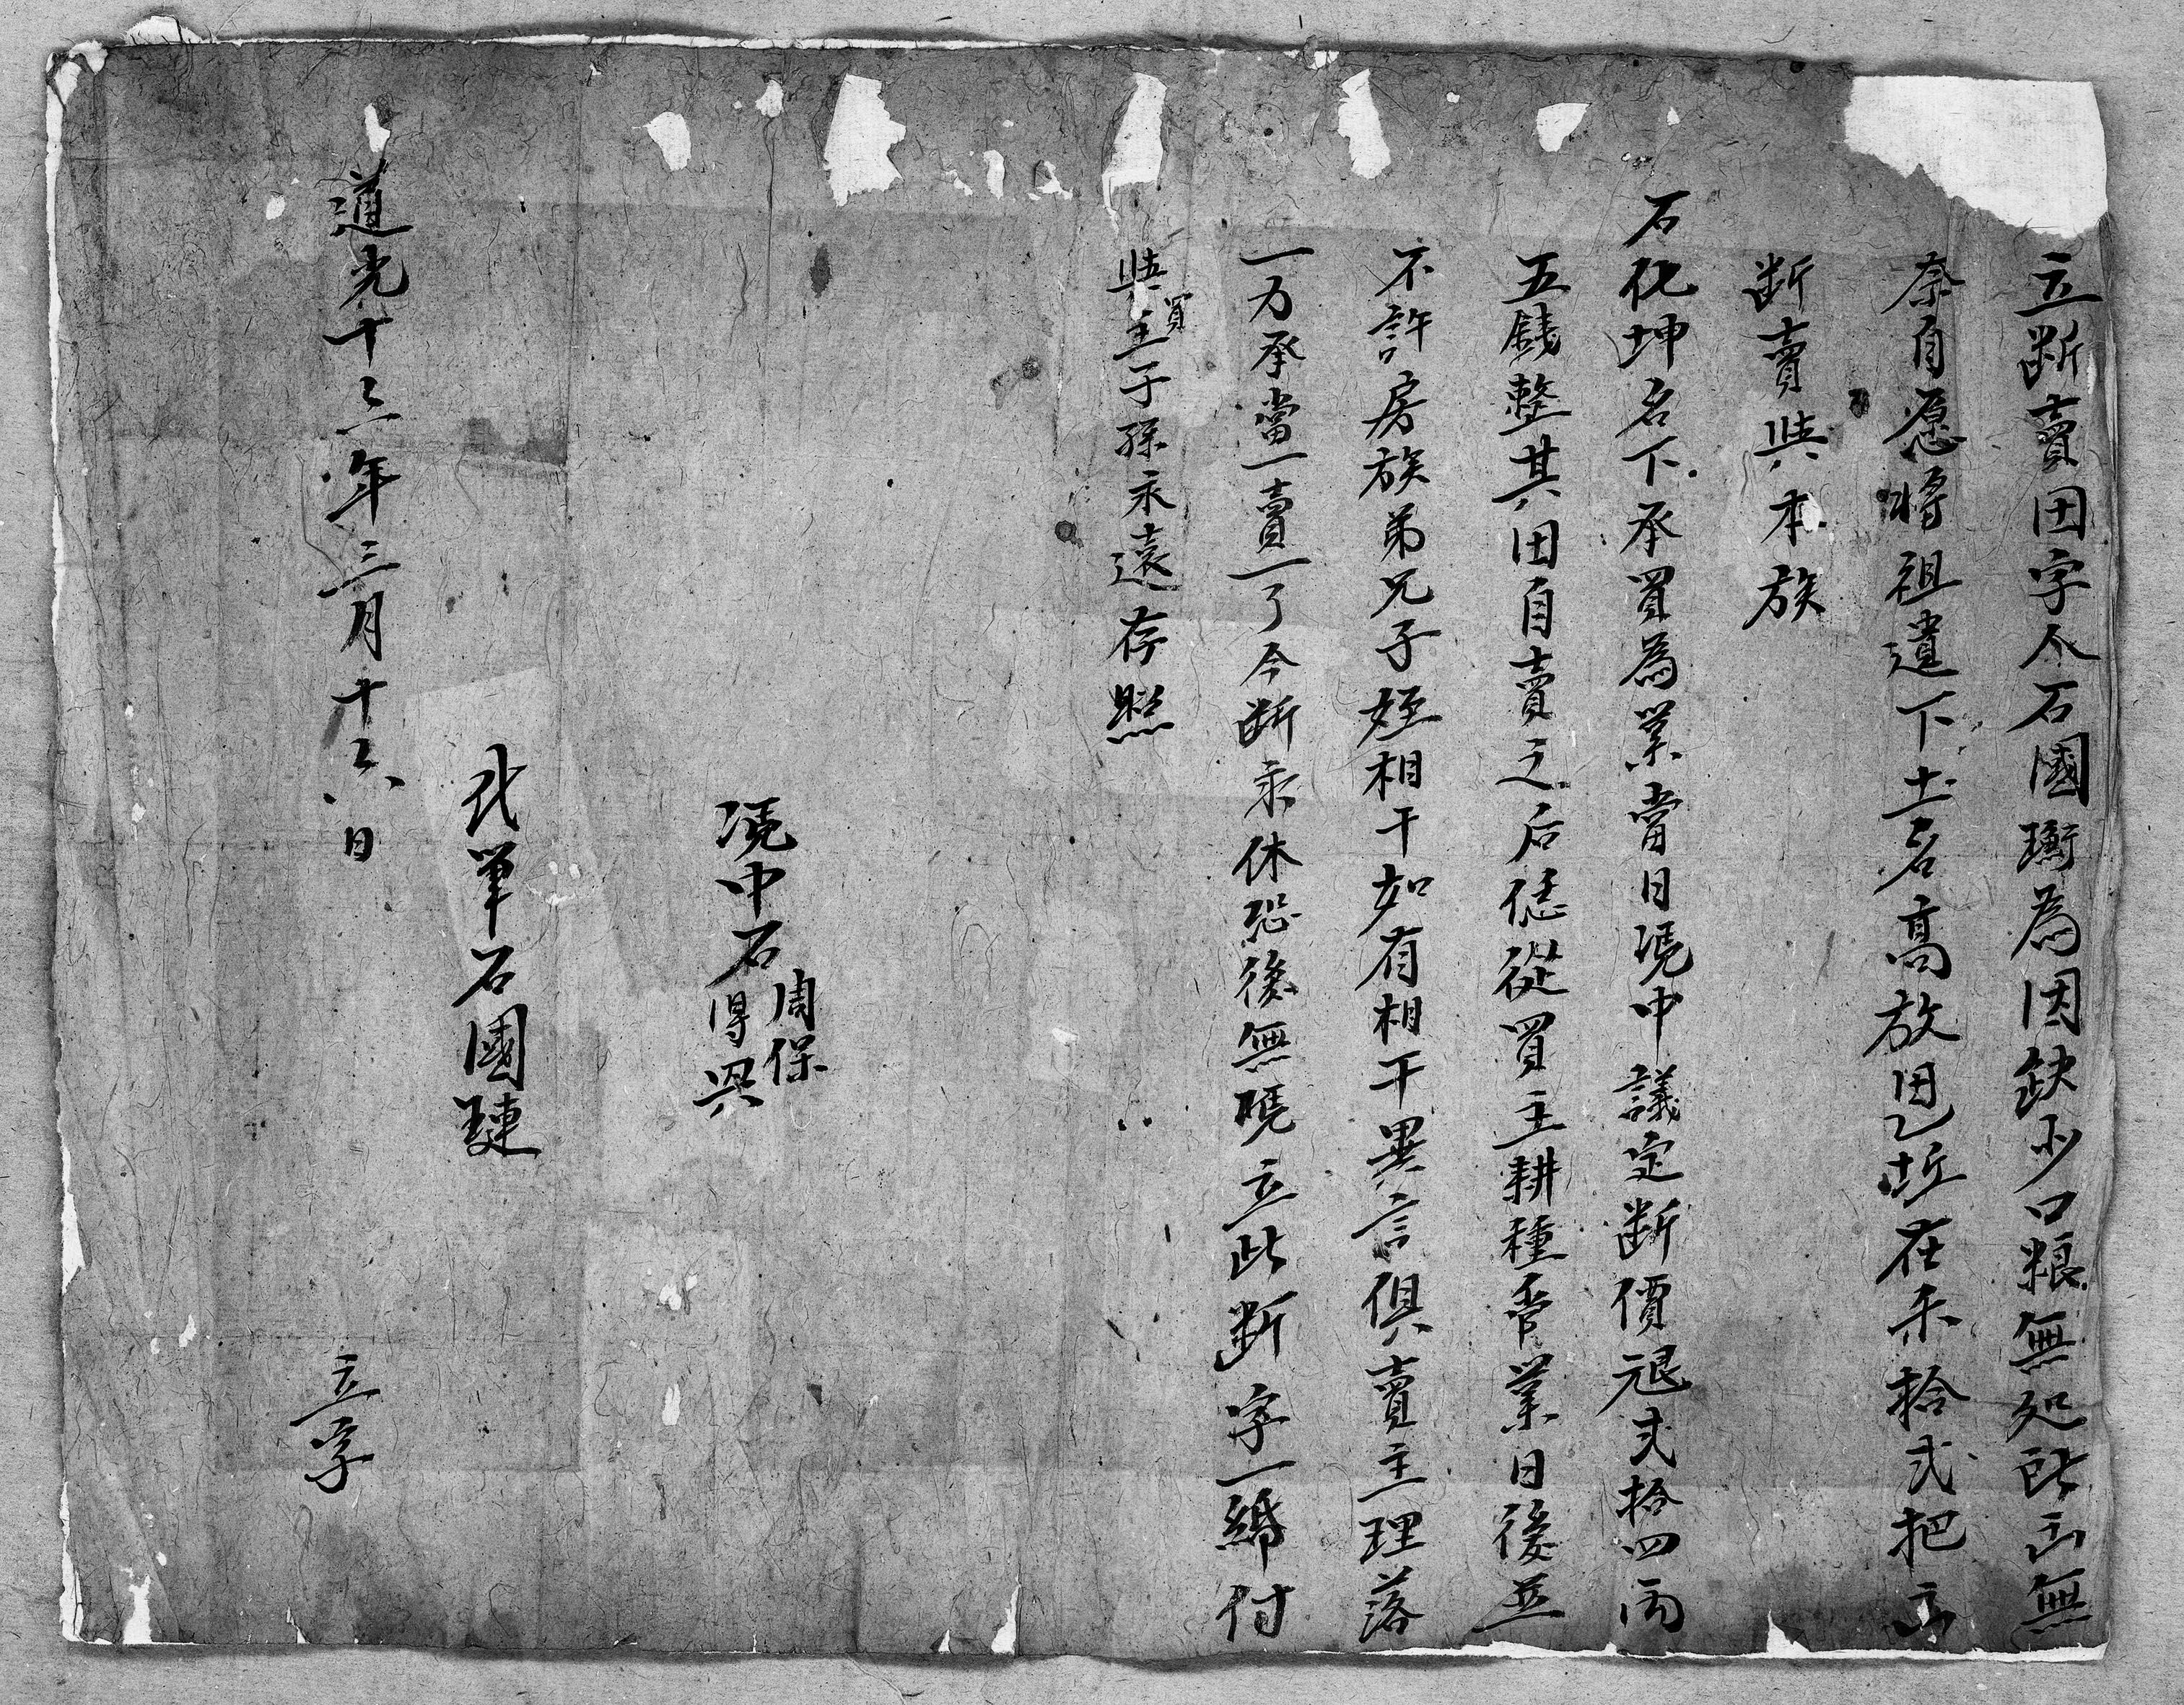 立断賣田字人石國衡為因缺少口粮無処所出無
奈自愿將祖遺下土名高放田乙坵在禾拾弍把出
断賣與本族
石化坤名下承買為業當日凴中議定断價艮弍拾四両
五錢整其田自賣之后恁從買主耕種管業日後並
不許房族弟兄子姪相干如有相干異言俱賣主理落
一力承當一賣一了今断永休恐後無凴立此断字一紙付
與買主子孫永遠存照
凴中石周保
得興
代筆石國璉
道光十三年三月十六日 立字